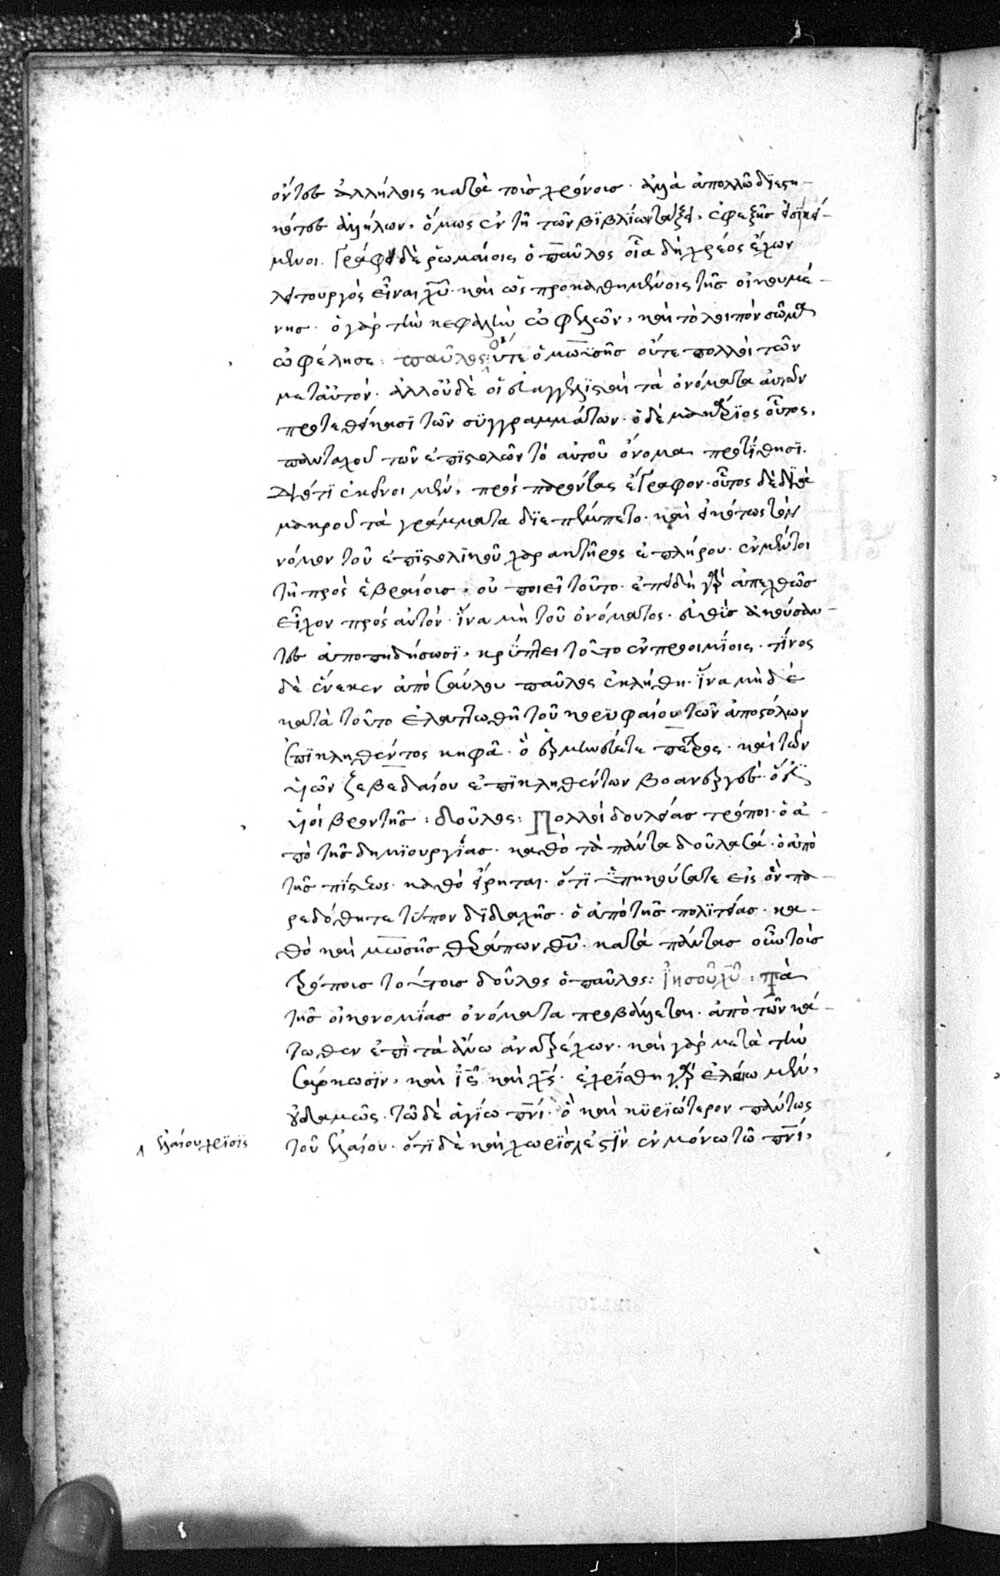 όντες ἀλλήλοις κατὰ τοὺς χρόνους· ἀλλὰ ἀπολλῶ διεστη-
κότες ἀλλήλων, ὅμως ἐν τῆ τῶν βϊβλίων τάξει, ἐφεξῆς εἰσὶ κεί-
μενοι. Γράφει δὲ ῥωμαίοις ὁ παῦλος οἷα δὴ χρέος ἔχων
λειτουργὸς εἶναι χυ̅· καὶ ὡς προκαθημένοις τῆς οἰκουμέ-
νης· ὁ γὰρ τὴν κεφαλὴν ὠφελῶν, καὶ τὸ λοιπὸν σῶμα
ὠφέλησε: παῦλος: οὔτε ὁ μωϋσῆς οὔτε πολλοὶ τῶν
μετ αὐτόν· ἀλλ οὐδὲ οἱ εὐαγγελισταὶ τὰ ὀνόματα αὐτῶν
προτεθείκασϊ τῶν σϋγγραμμάτων· ὁ δὲ μακάριος οὗτος,
πανταχοῦ τῶν ἐπιστολῶν τὸ αὐτοῦ ὄνομα προτίθησϊ.
Διότϊ ἐκεῖνοι μὲν, πρὸς παρόντας ἔγραφον· οὗτος δὲ διὰ
μακροῦ τὰ γράμματα διεπέμπετο· καὶ εἰκότως τὸν
νόμον τοῦ ἐπιστολϊκοῦ χαρακτῆρος ἐπλήρου· ἐν μέντοι
τῆ πρὸς ἑβραίους, οὐ ποιεῖ τοῦτο· ἐπειδὴ γὰρ ἀπεχθῶς
εἶχον πρὸς αὐτόν· ἵνα μὴ τοῦ ὀνόματος εὐθὺς ἀκούσαν-
τες ἀποπηδήσωσϊ, κρύπτει τοῦτο ἐν προοιμίοις· τίνος
δὲ ἕνεκεν ἀπὸ σαύλου παῦλος ἐκλήθη· ἵνα μὴ δὲ
κατὰ τοῦτο ἐλαττωθῆ τοῦ κορυφαίου τῶν ἀποστόλων
ἐπϊκληθέντος κηφᾶ· ὃ ἑρμηνεύεται πέτρος· καὶ τῶν
υἱῶν ζεβεδαίου ἐπϊκληθέντων βοανεργές· ὅ ἐστϊ
υἱοὶ βροντῆς: δοῦλος: Πολλοὶ δουλείας τρόποι· ὁ ἀ-
πὸ τῆς δημϊουργίας· καθὸ τὰ πάντα δοῦλα σά· ὁ ἀπὸ
τῆς πίστεως· καθὸ εἴρηται· ὅτϊ ὑπηκούσατε εἰς ὃν πα-
ρεδόθητε τύπον διδαχῆς· ὁ ἀπὸ τῆς πολϊτείας· κα-
θὸ καὶ μωσῆς θεράπων θυ̅· κατὰ πάντας οὖν τοὺς
τρόπους τούτους δοῦλος ὁ παῦλος: ἰησοῦ χυ̅: τὰ
τῆς οἰκονομίας ὀνόματα προβάλλεται· ἀπὸ τῶν κά-
τωθεν ἐπὶ τὰ ἄνω ἀνατρέχων· καὶ γὰρ μετὰ τὴν
σάρκωσϊν, καὶ ις̅ καὶ χς̅· ἐχρίσθη γὰρ ἐλαίω μὲν,
οὐδαμῶς· τῶ δὲ ἁγίω πνι̅· ὃ καὶ κυρϊώτερον πάντως
τοῦ ἐλαίου· ὅτϊ δὲ καὶ χωρὶς ἐλαίου χρῖσϊς ἐστϊν ἐν μόνω τῶ πνι̅,